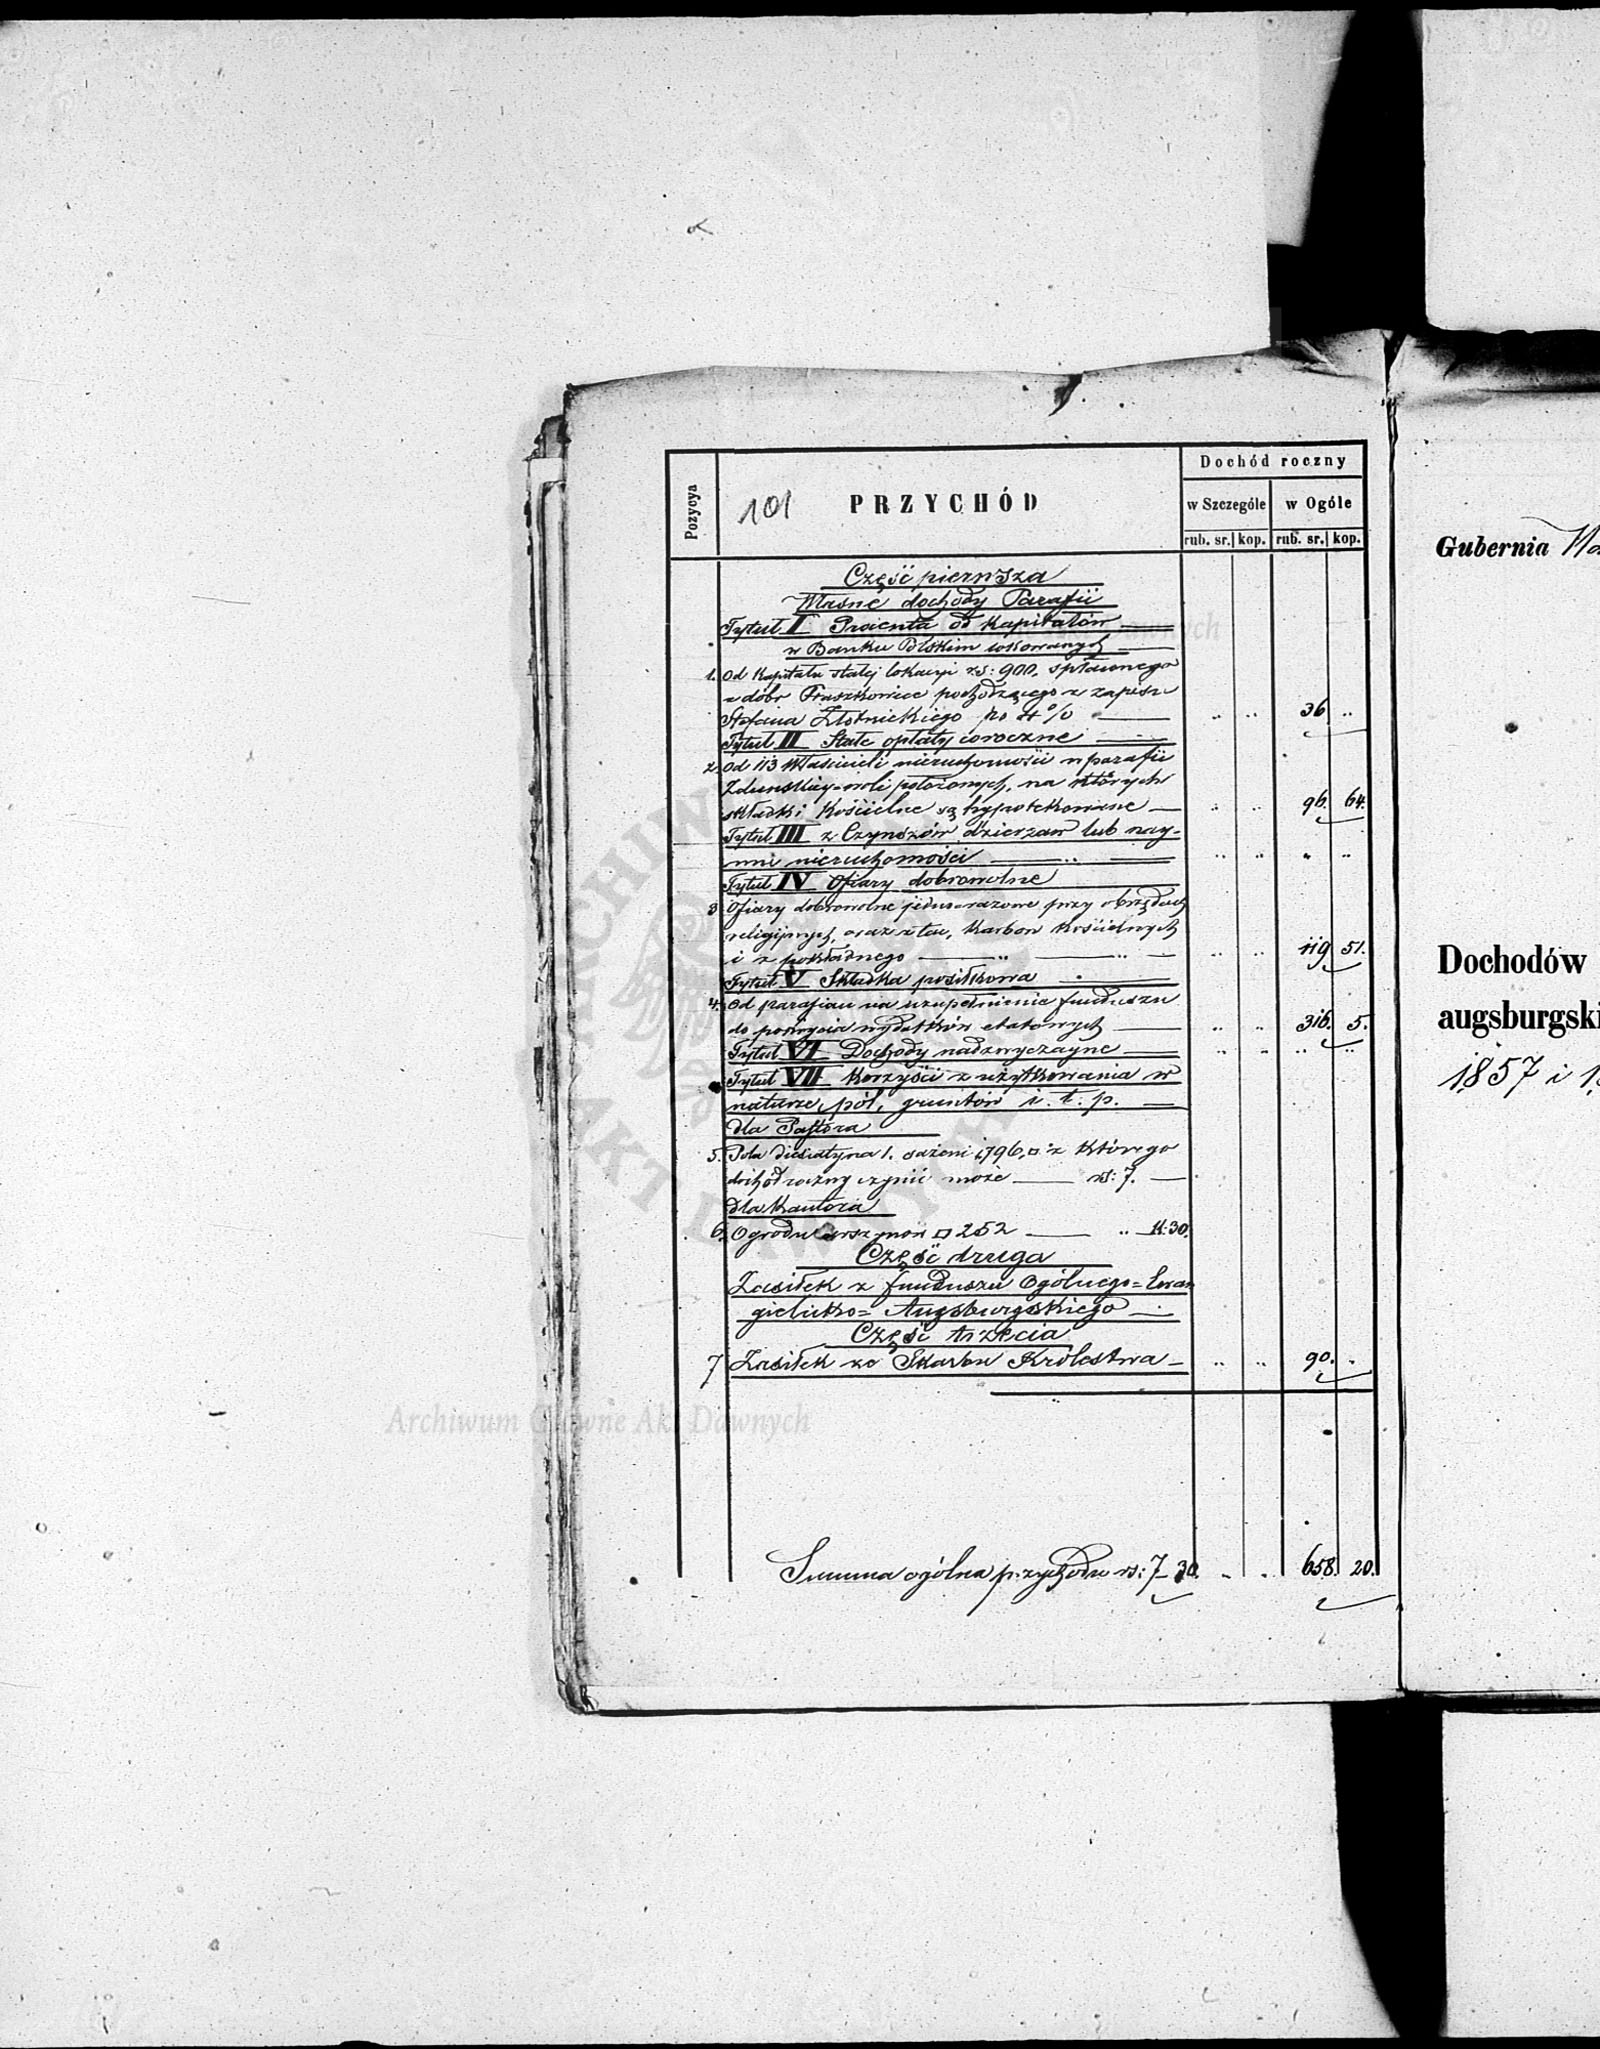 Dochód roczny
Pozycya
101
PRZYCHÓD
w Szczególe
w Ogóle
rub. sr. kop. rub. sr. kop.
Część pierwsza
Własne dochody Parafii
Tytuł I Procenta od Kapitałów
w Banku Polskim lokowanych
1. Od Kapitału stałej lokacyi rs: 900, spłaconego
z dóbr Praszkowice pochodzącego z zapisu
Stefana Złotnickiego po 4% 36 ..
Tytuł II Stałe opłaty coroczne
2. Od 113 Właścicieli nieruchomości w parafii
Zduńskiey-woli położonych, na których
składki Kościelne są hypotekowane 96. 64.
Tytuł III z Czynszów dzierżaw lub nay-
mu nieruchomości
Tytuł IV Ofiary dobrowolne
3 Ofiary dobrowolne jedno-razowe przy obrzędach
religijnych, oraz z tac, Karbon Kościelnych
i z pokładnego 119 51.
Tytuł V Składka posiłkowa
4. Od parafian na uzupełnienie funduszu
do pokrycia wydatków etatowych 316. 5.
Tytuł VI Dochody nadzwyczayne
Tytuł VII Korzyści z użytkowania w
naturze, pól, gruntów i. t. p.
dla Pastora
5. Pola diesiatyna 1. sażeni 1,796, □ z którego
dochód roczny czynić może rs: 7.
dla Kantora
6. Ogrodu arszynów □ 252 .. K: 30.
Część druga
Zasiłek z funduszu Ogólnego = Ewan
gielicko = Augsburgskiego
Część trzecia
7 Zasiłek ze Skarbu Królestwa 90. .
Summa ogólna przychodu rs: 7 30. 658. 20.
Gubernia
Dochodów
augsburgski
1857 i
Archiwum Główne Akt Dawnych